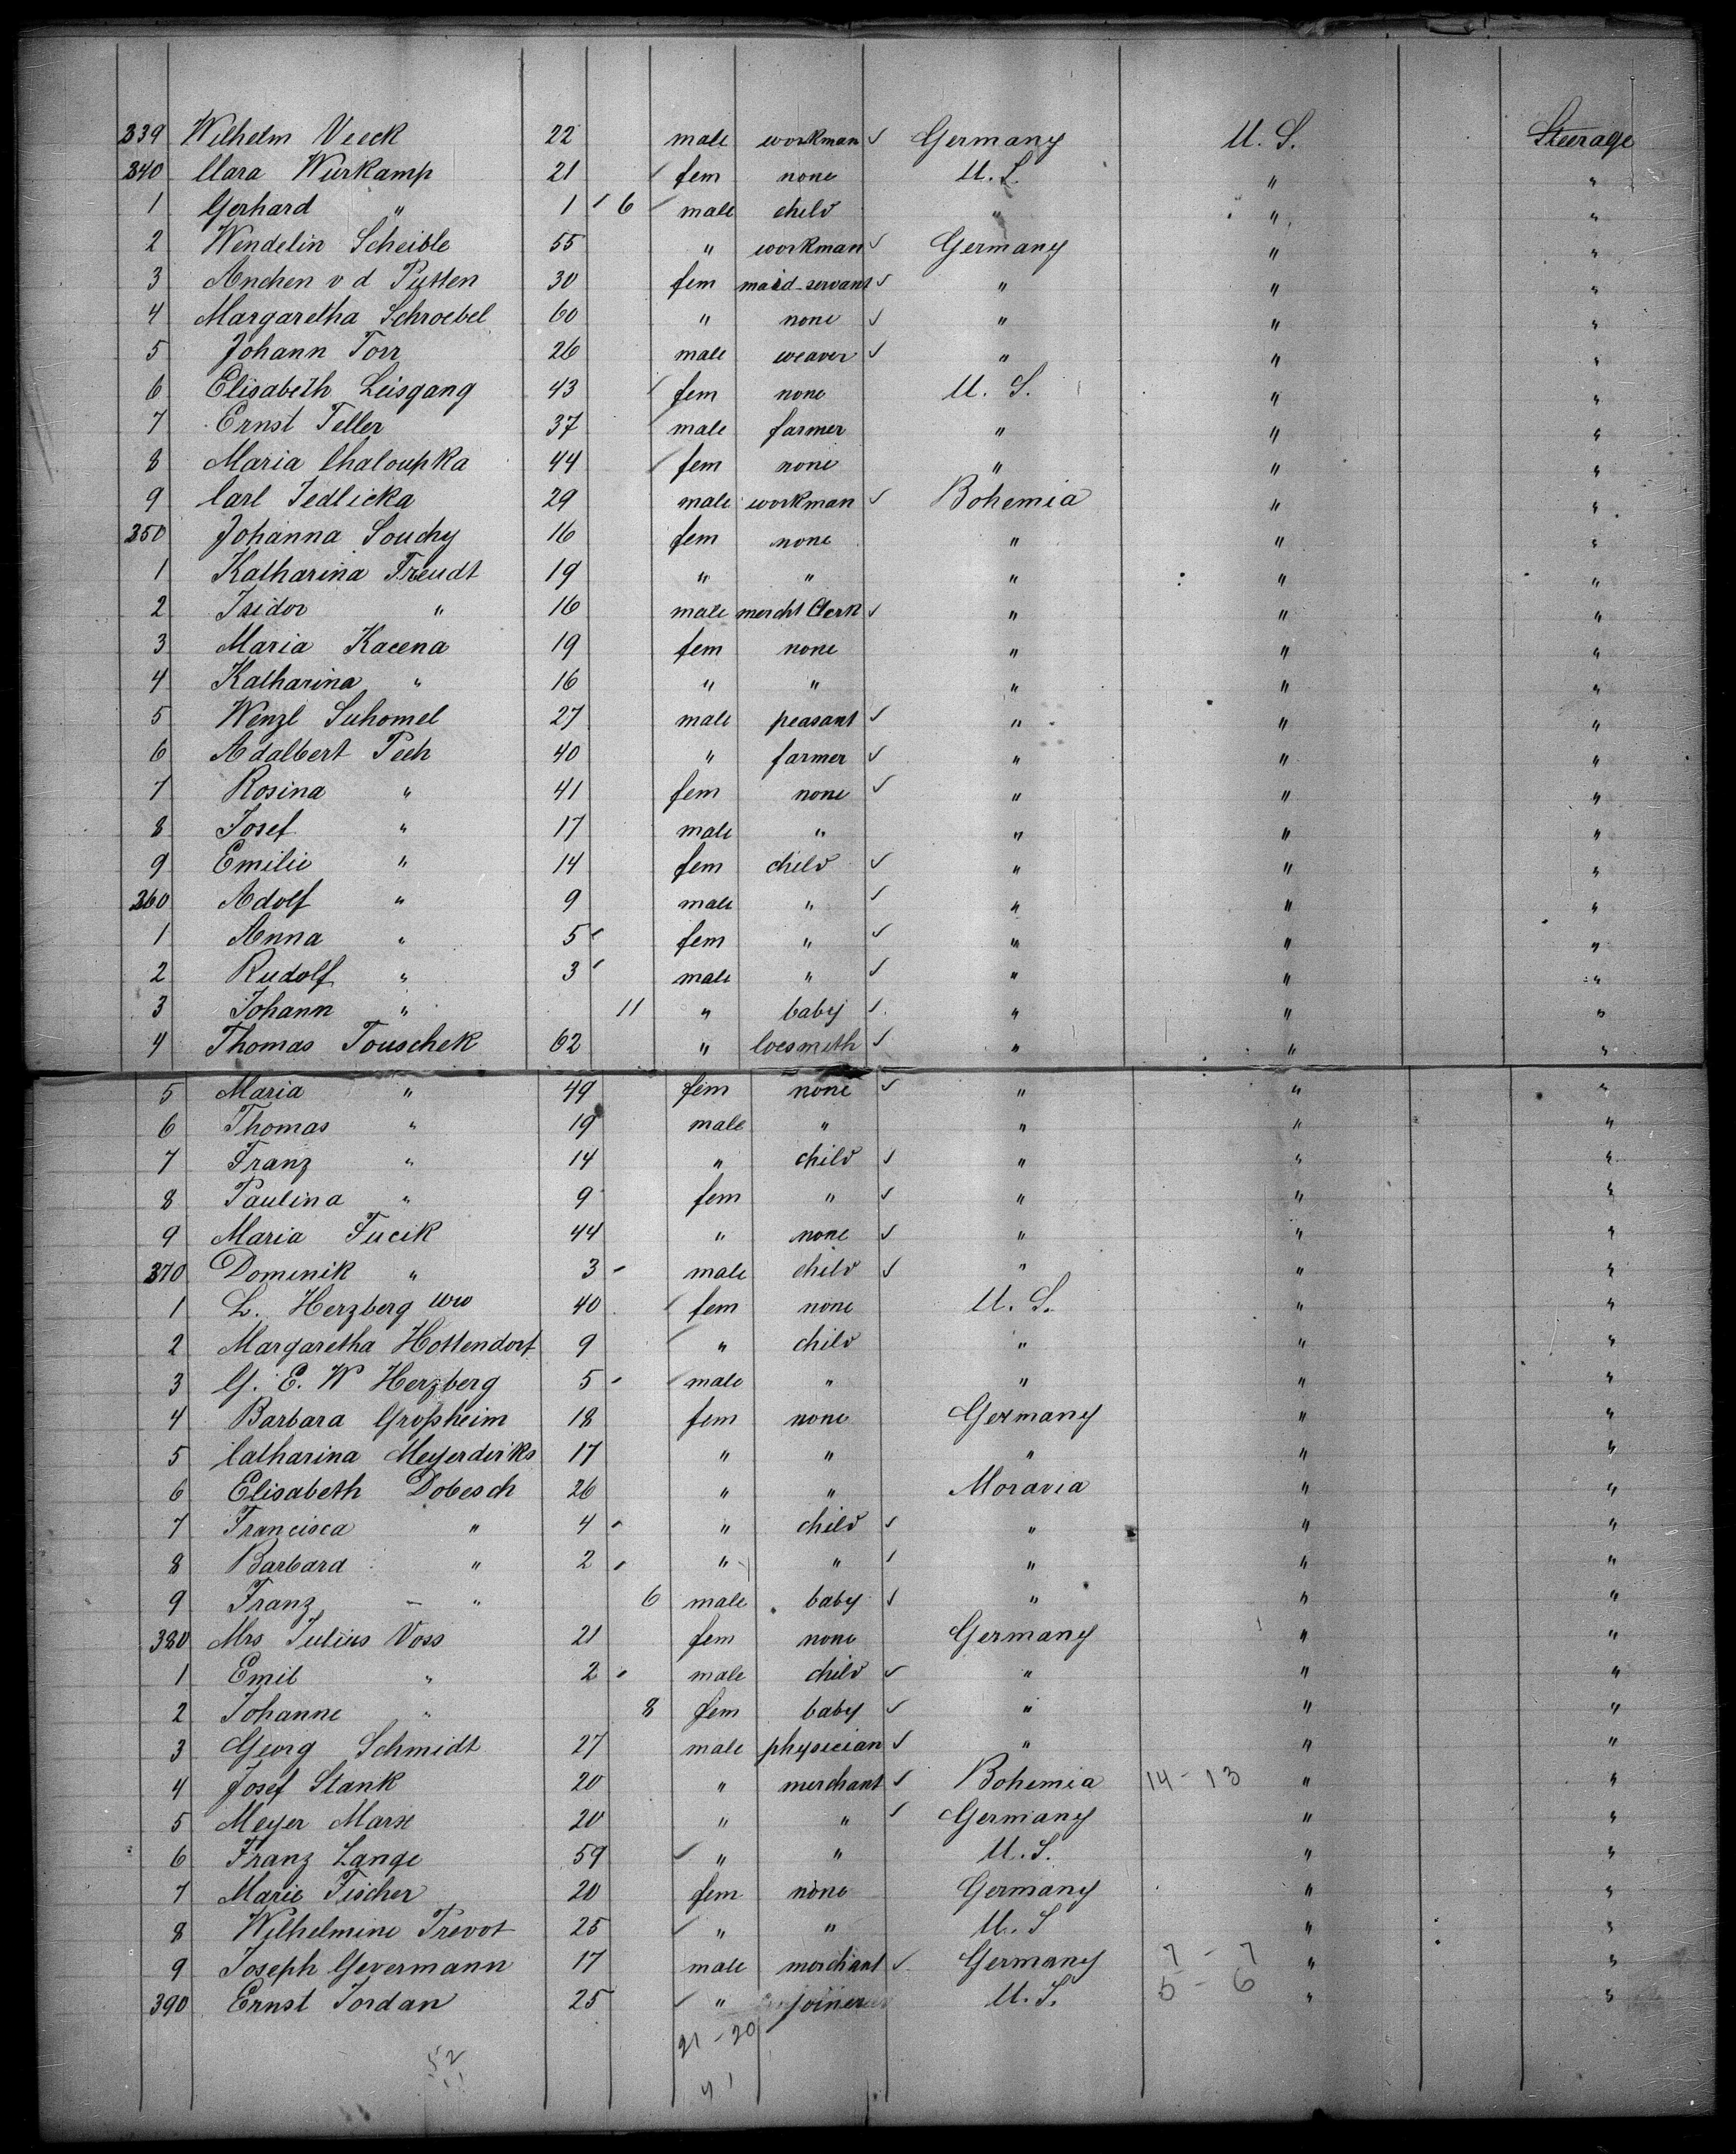 339 Wilhelm Veeck 22 male workman ✓ Germany U. S. Steerage
340 Clara Wurkamp 21 / fem none U. S. " "
1 Gerhard " 1 / 6 / male child " " "
2 Wendelin Scheible 55 " workman ✓ Germany " "
3 Anchen v d Putten 30 fem maid-servant ✓ " " "
4 Margaretha Schroebel 60 " none ✓ " " "
5 Johann Torr 26 male weaver ✓ " " "
6 Elisabeth Leisgang 43 / fem none U. S. " "
7 Ernst Teller 37 / male farmer " " "
8 Maria Chaloupka 44 / fem none " " "
9 Carl Jedlicka 29 male workman ✓ Bohemia " "
350 Johanna Souchy 16 fem none " " "
1 Katharina Freudt 19 " " " " "
2 Isidor " 16 male mercht Clerk ✓ " " "
3 Maria Kacena 19 fem none " " "
4 Katharina " 16 " " " " "
5 Wenzl Suhomel 27 male peasant ✓ " " "
6 Adalbert Pech 40 " farmer ✓ " " "
7 Rosina " 41 fem none ✓ " " "
8 Josef " 17 male " " " "
9 Emilie " 14 fem child ✓ " " "
360 Adolf " 9 male " ✓ " " "
1 Anna " 5 fem " ✓ " " "
2 Rudolf " 3 male " ✓ " " "
3 Johann " 11 " baby ✓ " " "
4 Thomas Touschek 62 " locsmith ✓ " " "
5 Maria " 49 fem none ✓ " " "
6 Thomas " 19 male " " " "
7 Franz " 14 " child ✓ " " "
8 Paulina " 9 fem " ✓ " " "
9 Maria Fucik 44 " none ✓ " " "
370 Dominik " 3 male child ✓ " " "
1 L. Herzberg ww 40 / fem none U. S. " "
2 Margaretha Hottendorf 9 / " child " " "
3 G. E. W Herzberg 5 / male " " " "
4 Barbara Großheim 18 fem none Germany " "
5 Catharina Meyerdirks 17 " " " " "
6 Elisabeth Dobesch 26 " " Moravia " "
7 Francisca " 4 " child ✓ " " "
8 Barbara " 2 " " ✓ " " "
9 Franz " 6 male baby ✓ " " "
380 Mrs Julius Voss 21 fem none Germany " "
1 Emil " 2 male child ✓ " " "
2 Johanne " 8 fem baby ✓ " " "
3 Georg Schmidt 27 male physician ✓ " " "
4 Josef Stank 20 " merchant ✓ Bohemia 14 - 13 " "
5 Meyer Marx 20 " " ✓ Germany " "
6 Franz Lange 59 ✓ " " U. S. " "
7 Marie Fischer 20 fem none Germany " "
8 Wilhelmine Prevot 25 ✓ " " U. S " "
9 Joseph Gevermann 17 male merchant ✓ Germany 7 - 7 " "
390 Ernst Jordan 25 ✓ " joiner U. S. 5 - 6 " "
21 - 20
52
41